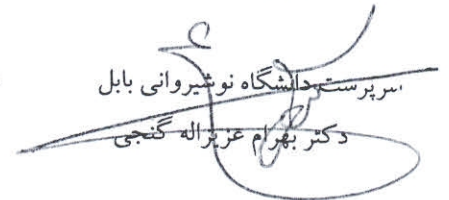 سرپرست دانشگاه نوشیروانی بابل
دکتر بهرام عزیزاله گنجی